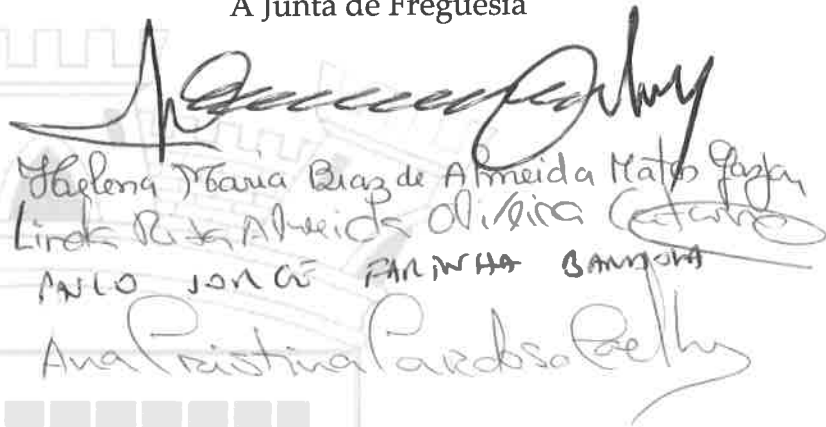 A Junta de Freguesia
Helena Maria Braz de Almeida Matos
Linda Rita Almeida Oliveira Catarino
PAULO JORGE FARINHA
Ana Cristina Cardoso Coelho